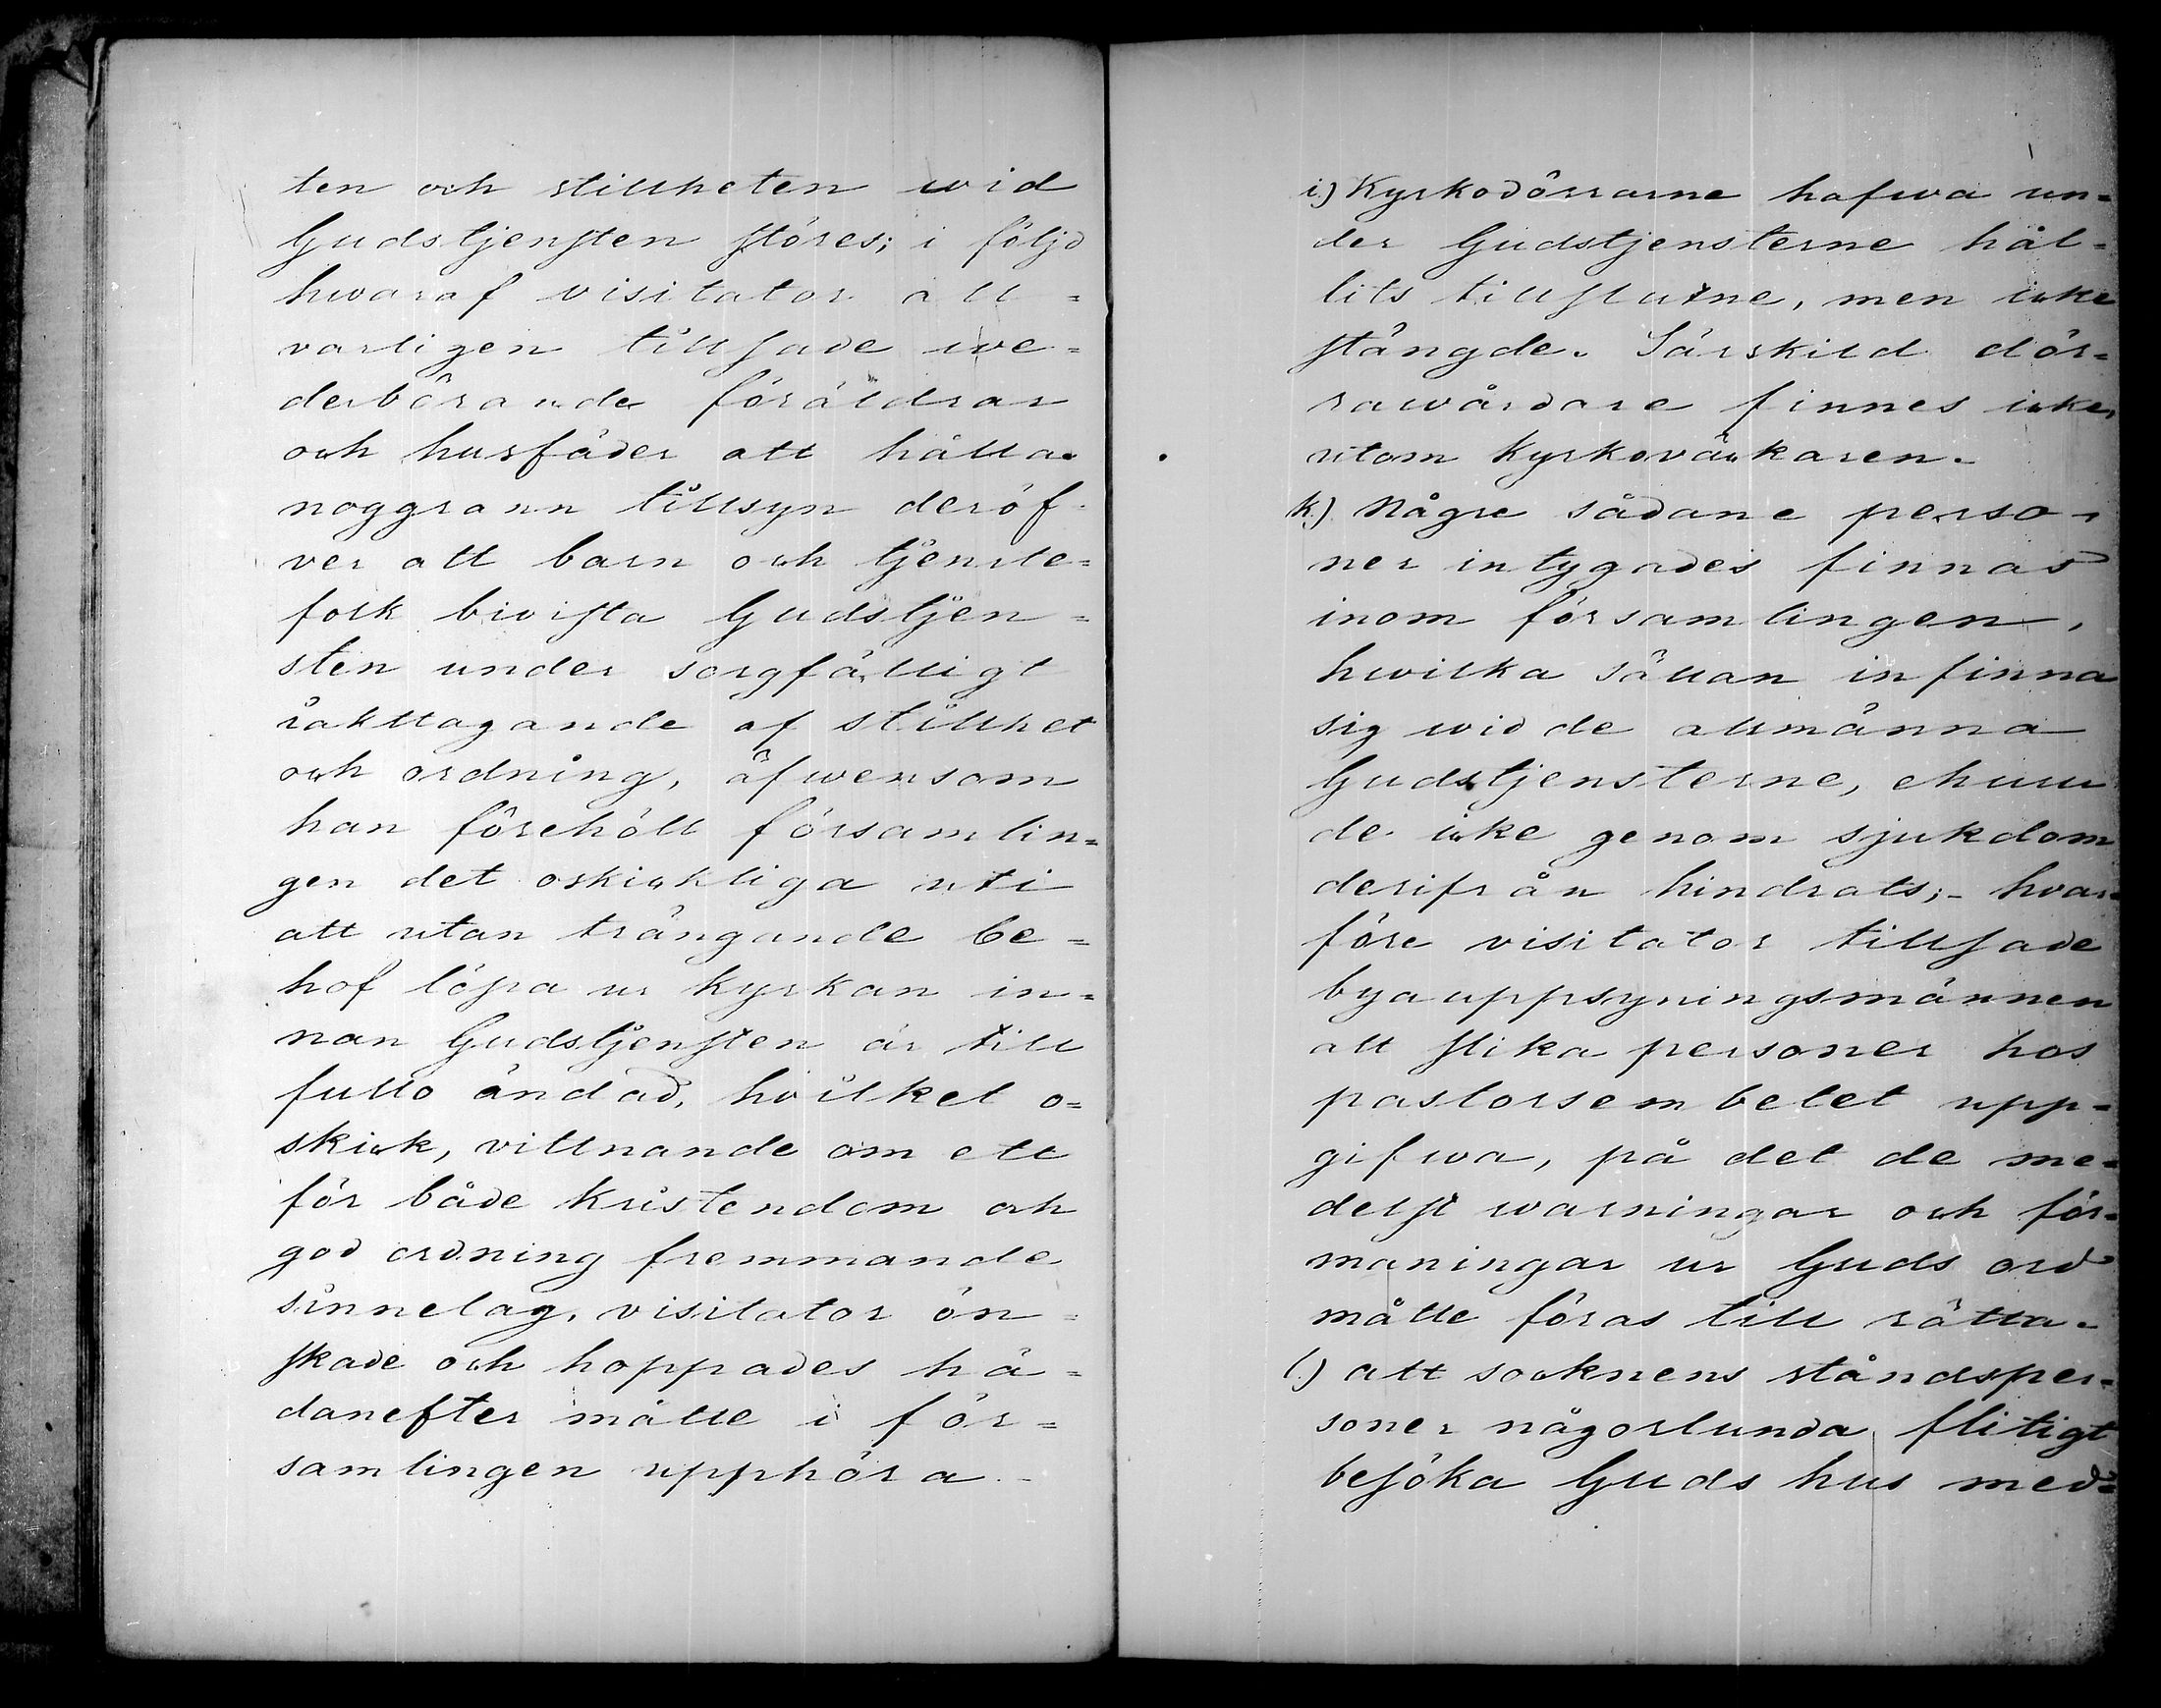 ten och stillheten wid
Gudstjensten störes; i följd
hwaraf visitator all=
varligen tillsade we=
derbörande föräldrar
och husfäder att hålla
noggrann tillsyn deröf-
ver att barn och tjenste=
folk bivista Gudstjen=
sten under sorgfälligt
iakttagande af stillhet
och ordning, äfwensom
han förehöll församlin=
gen det oskickliga uti
att utan trängande be=
hof löpa ur kyrkan in=
nan Gudstjensten är till
fullo ändad, hvilket o=
skick, vittnande om ett
för både kristendom och
god ordning fremmande
sinnelag, visitator ön=
skade och hoppades hä=
danefter måtte i för=
samlingen upphöra.-
i.) Kyrkodörrarne hafwa un=
der Gudstjensterne hål=
lits tillslutne, men icke
stängde. Särskild dör=
rawårdare finnes icke,
utom kyrkoväckaren.
k.) Någre sådane perso-
ner intygades finnas
inom församlingen,
hwilka sällan infinna
sig wid de allmänna
Gudstjensterne, ehuru
de icke genom sjukdom
derifrån hindrats;- hvar=
före visitator tillsade
byauppsyningsmännen
att slika personer hos
pastorsembetet upp=
gifwa, på det de me=
delst warningar och för=
maningar ur Guds ord
måtte föras till rätta.
l.) att socknens ståndsper=
soner någorlunda flitigt
besöka Guds hus med=